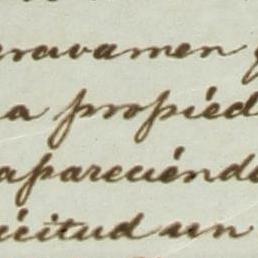 gravamen
a propied
apareciendo
icitud un